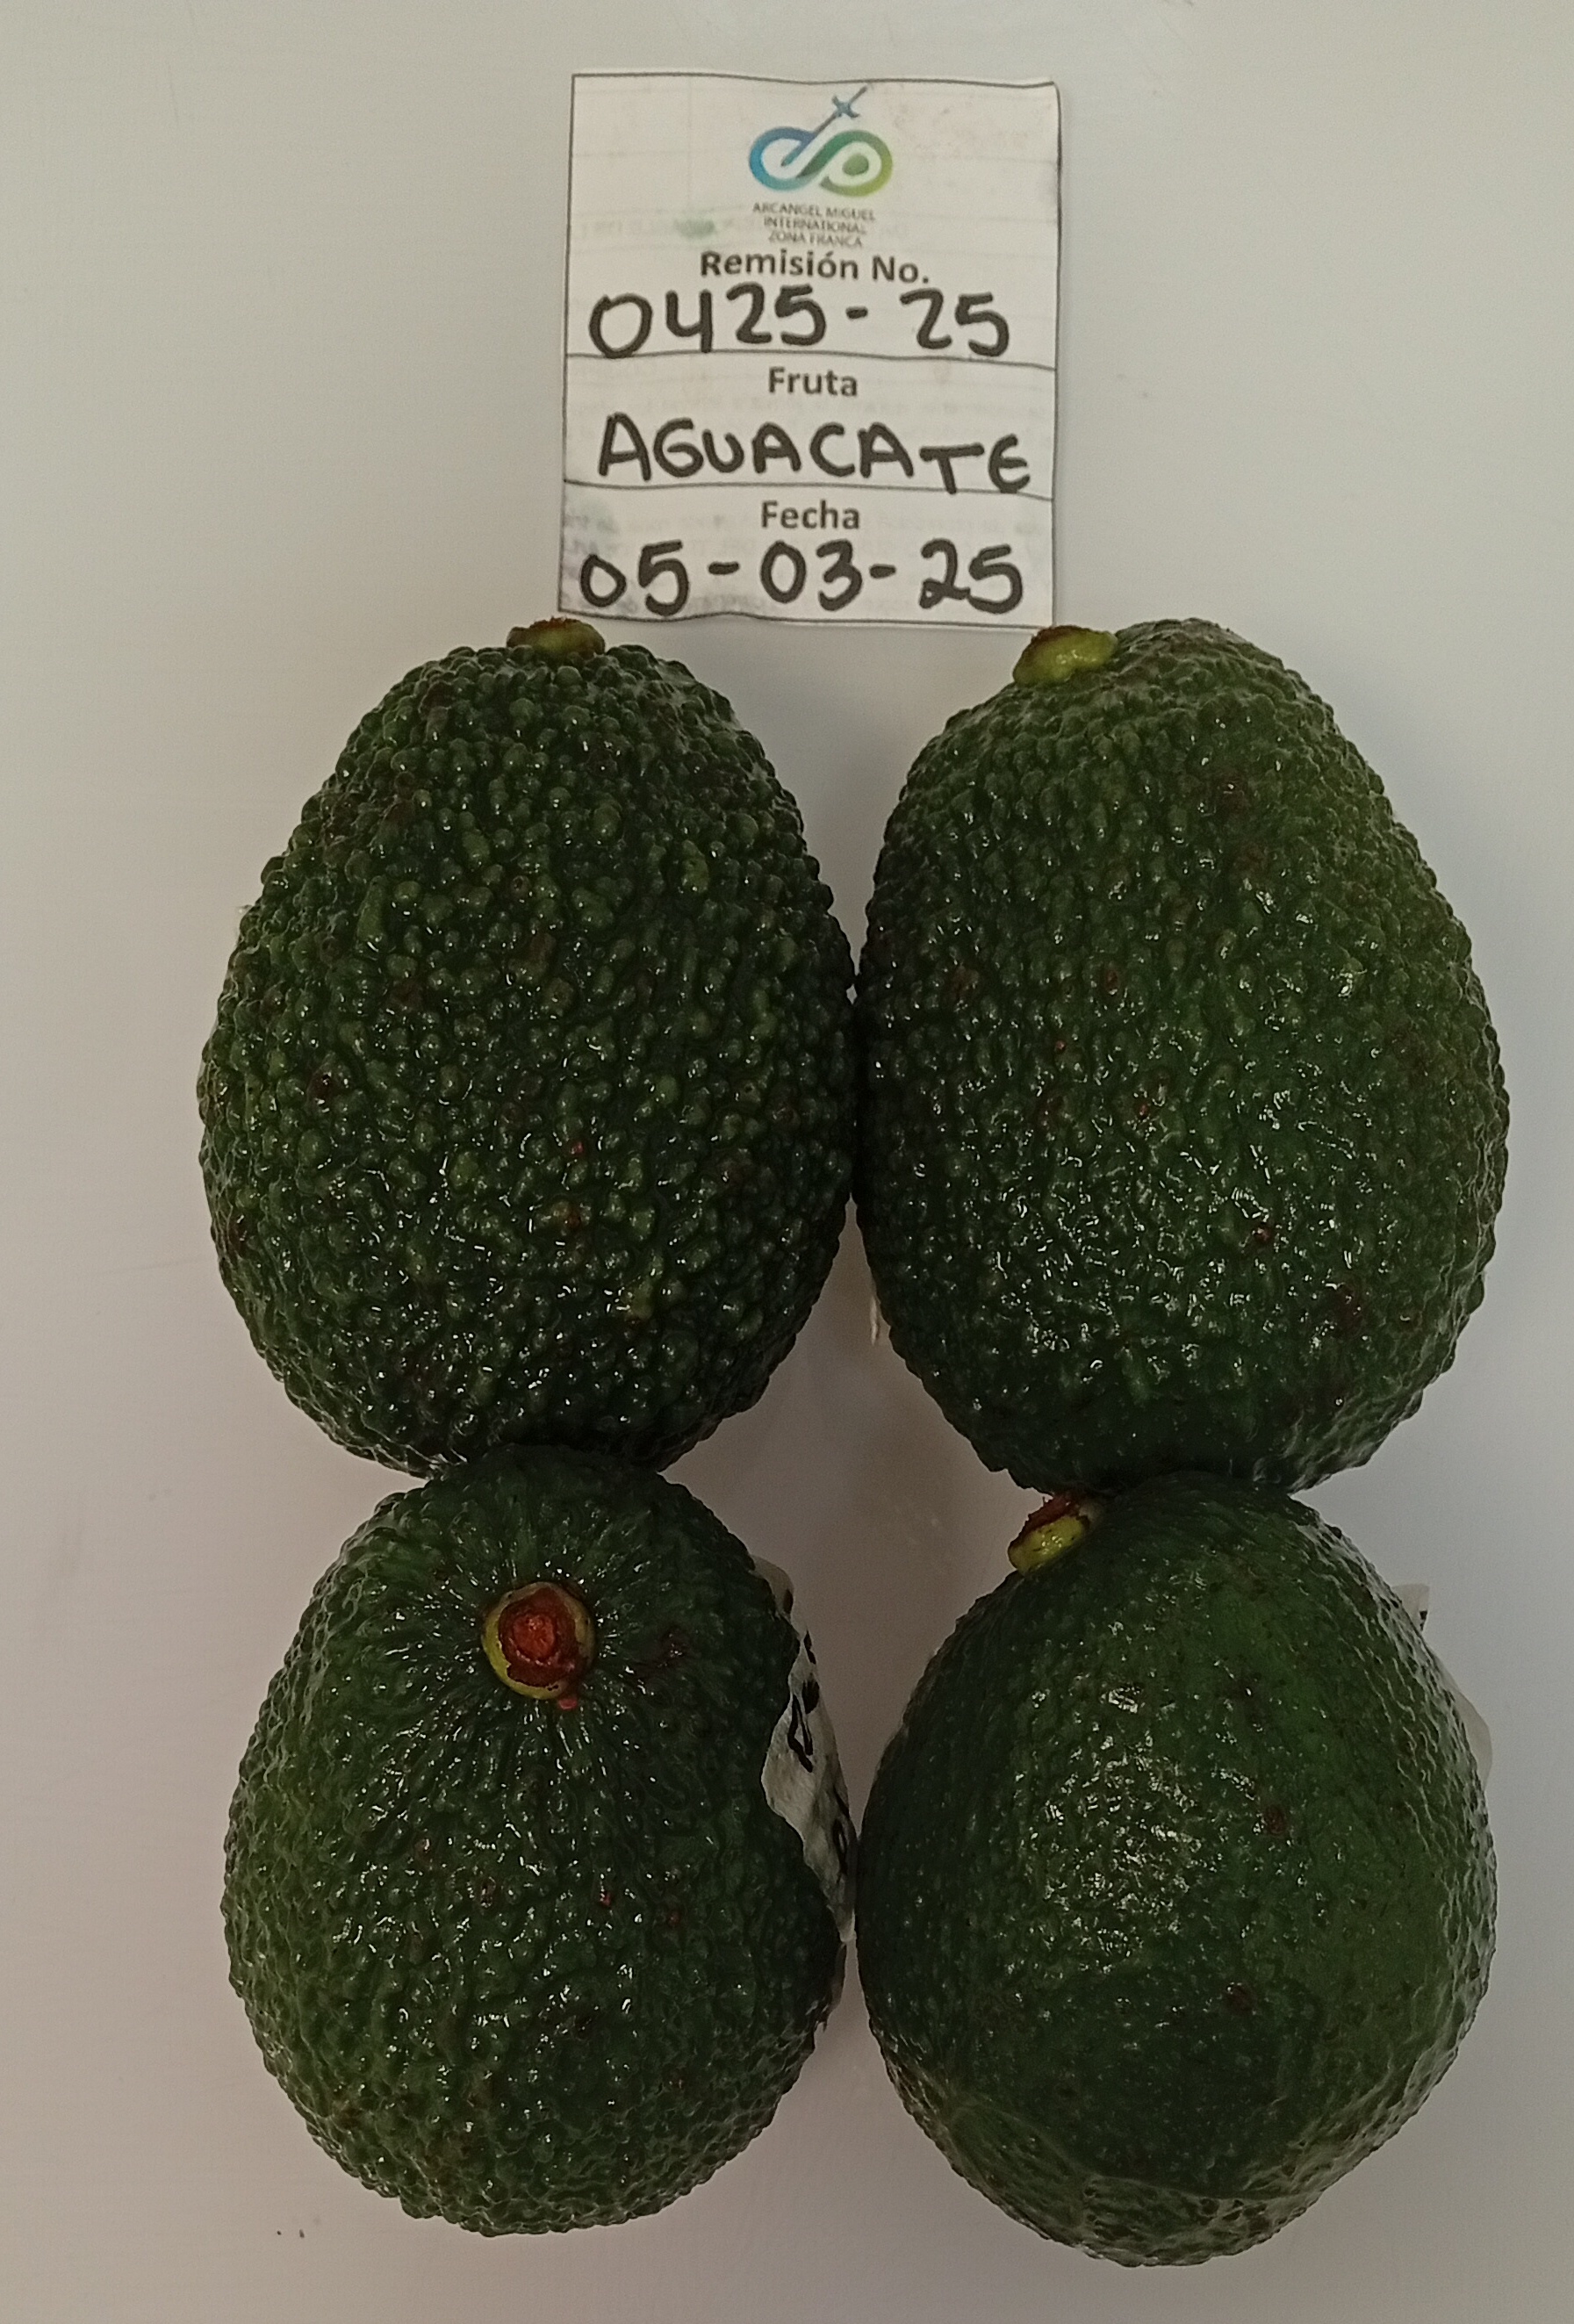 ARCANGEL MIGUEL
INTERNATIONAL
ZONA FRANCA
Remisión No.
0425-25
Fruta
AGUACATE
Fecha
05-03-25